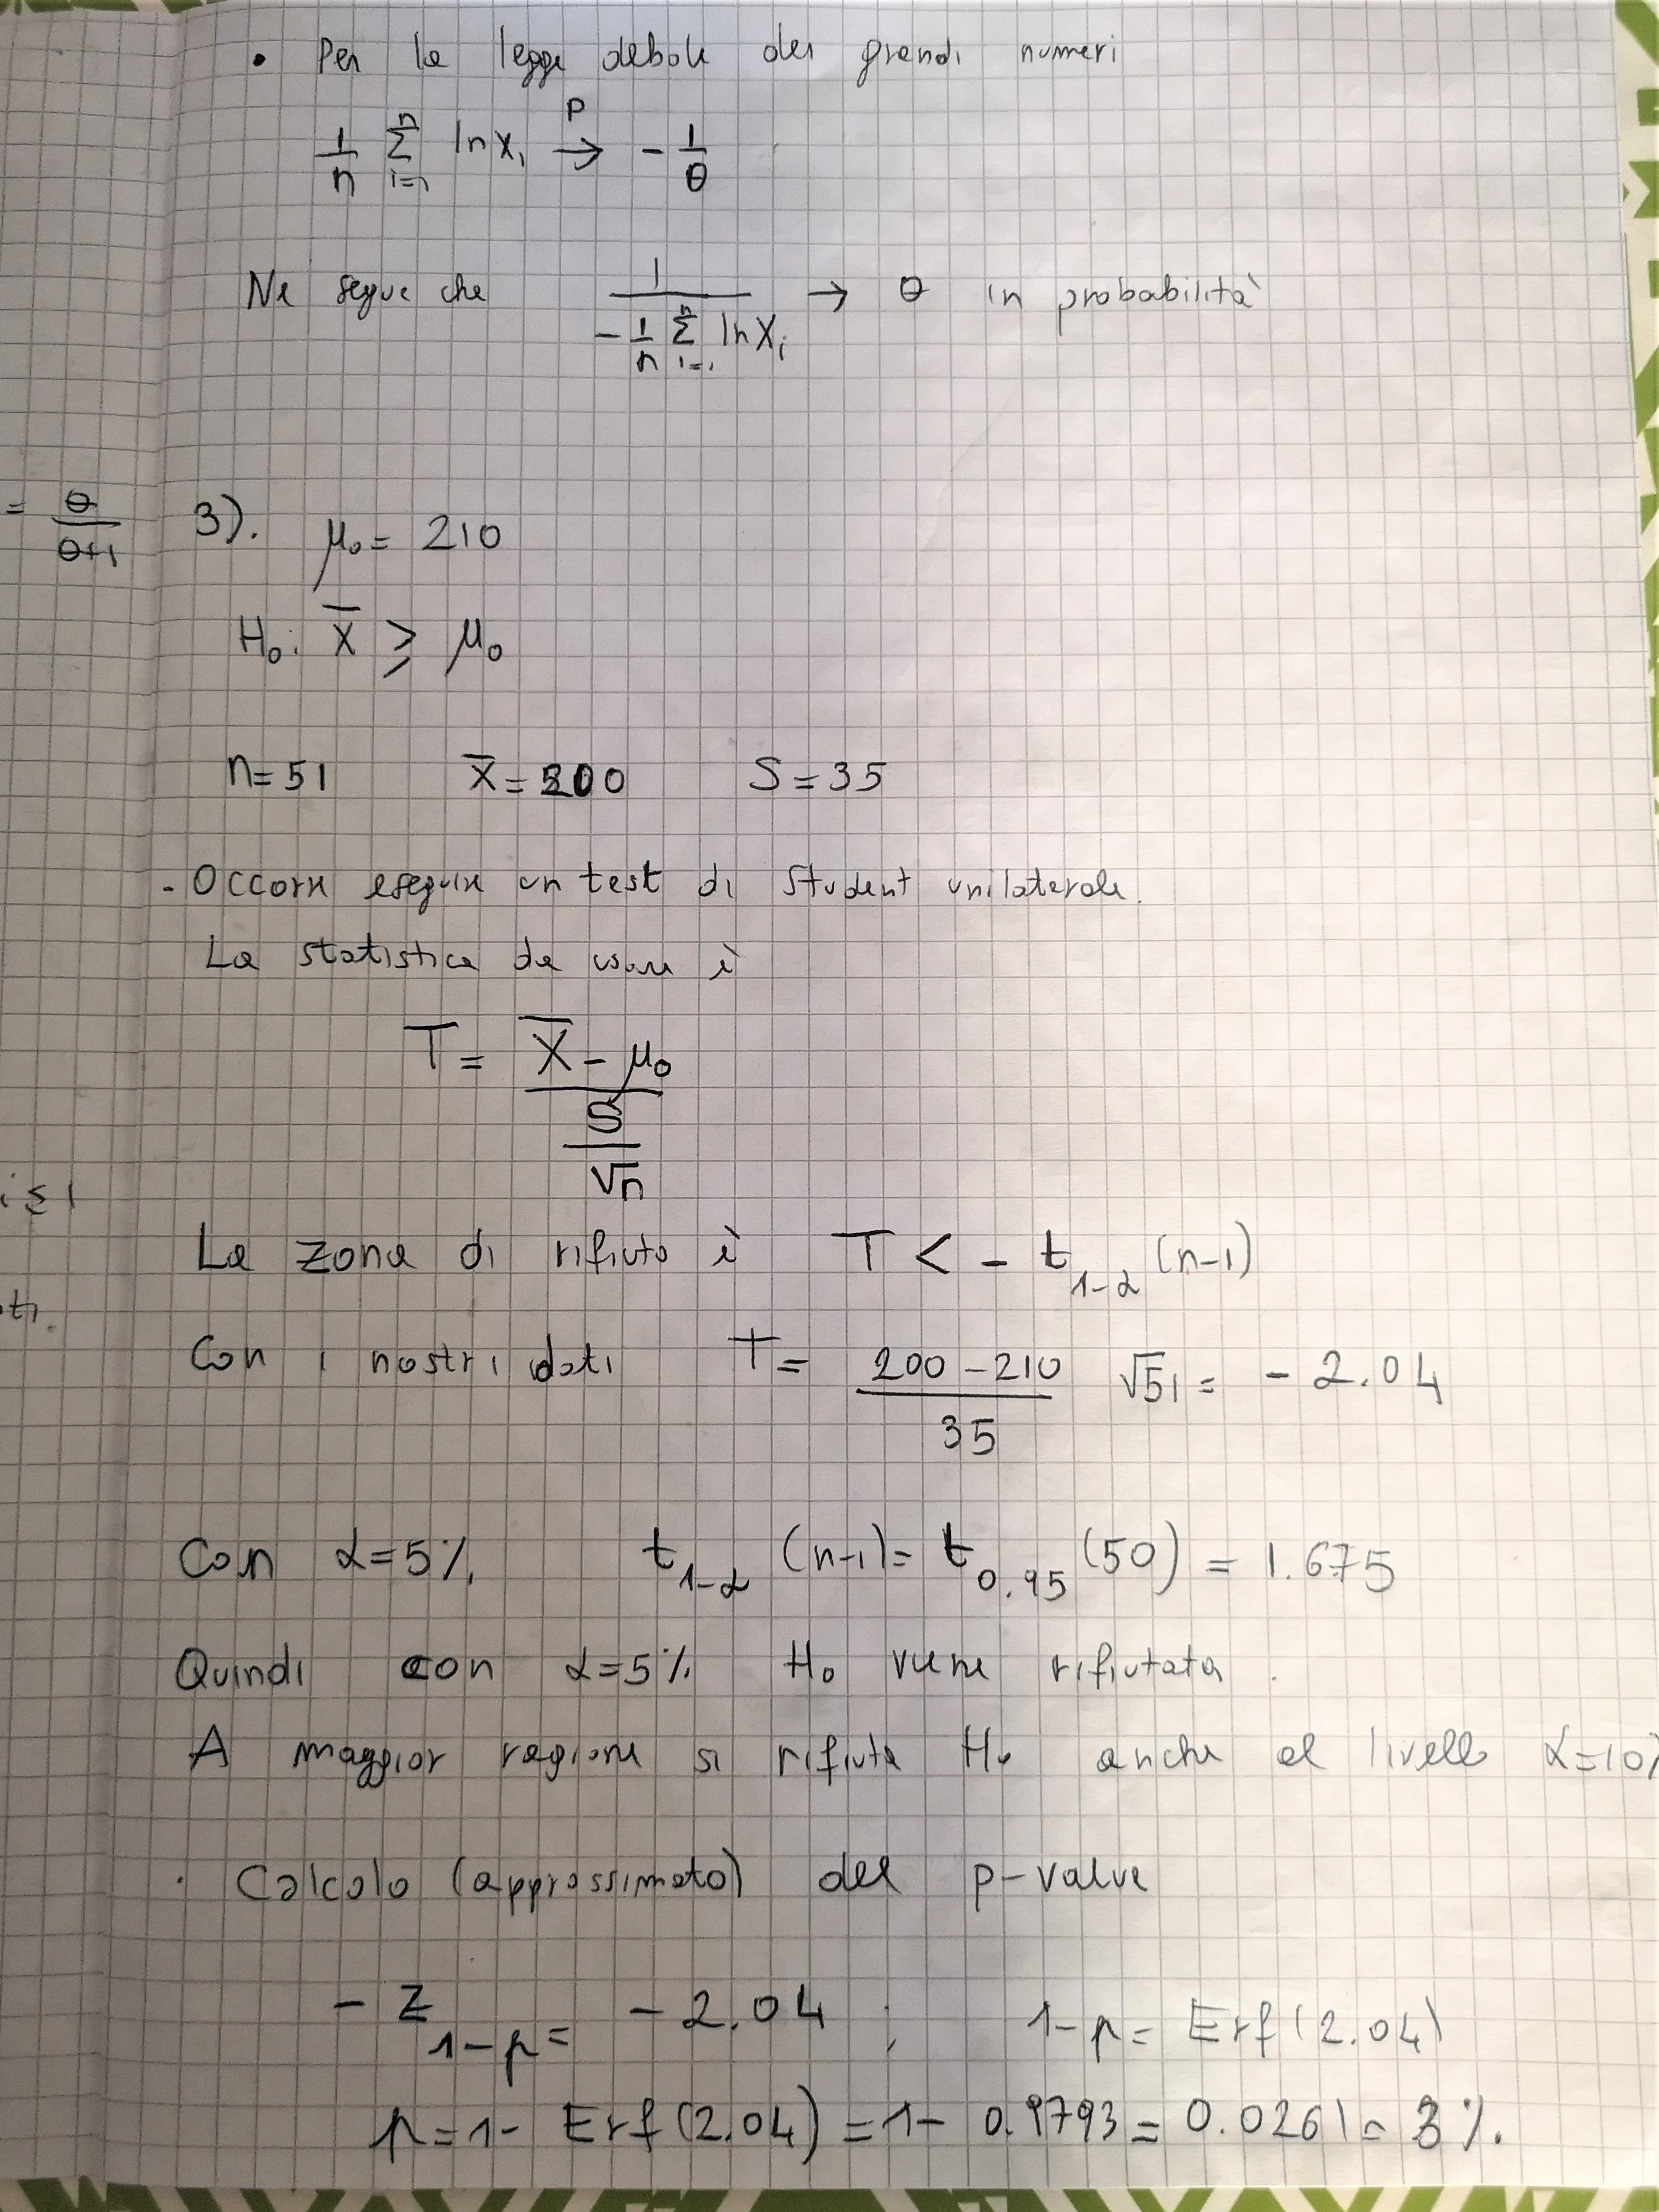 • Per la legge debole dei grandi numeri
1/n Σ_{i=1}^{n} ln X_i →^P - 1/θ
Ne segue che 1/(- 1/n Σ_{i=1}^{n} ln X_i) → θ in probabilità
= θ/(θ+1)
3). μ_0 = 210
H_0: X̄ ≥ μ_0
n=51 X̄=200 S=35
- Occorre eseguire un test di Student unilaterale.
La statistica da usare è
T = (X̄ - μ_0)/(S/√n)
i ≤ 1
La zona di rifiuto è T < - t_{1-α} (n-1)
ti.
Con i nostri dati T = (200-210)/35 √51 = -2.04
Con α=5% t_{1-α} (n-1) = t_{0.95} (50) = 1.675
Quindi con α=5% H_0 viene rifiutata.
A maggior ragione si rifiuta H_0 anche al livello α=10%
· Calcolo (approssimato) del p-value
- z_{1-p} = -2.04 ; 1-p = Erf(2.04)
p = 1- Erf(2.04) = 1- 0.9793 = 0.0261 = 3%.